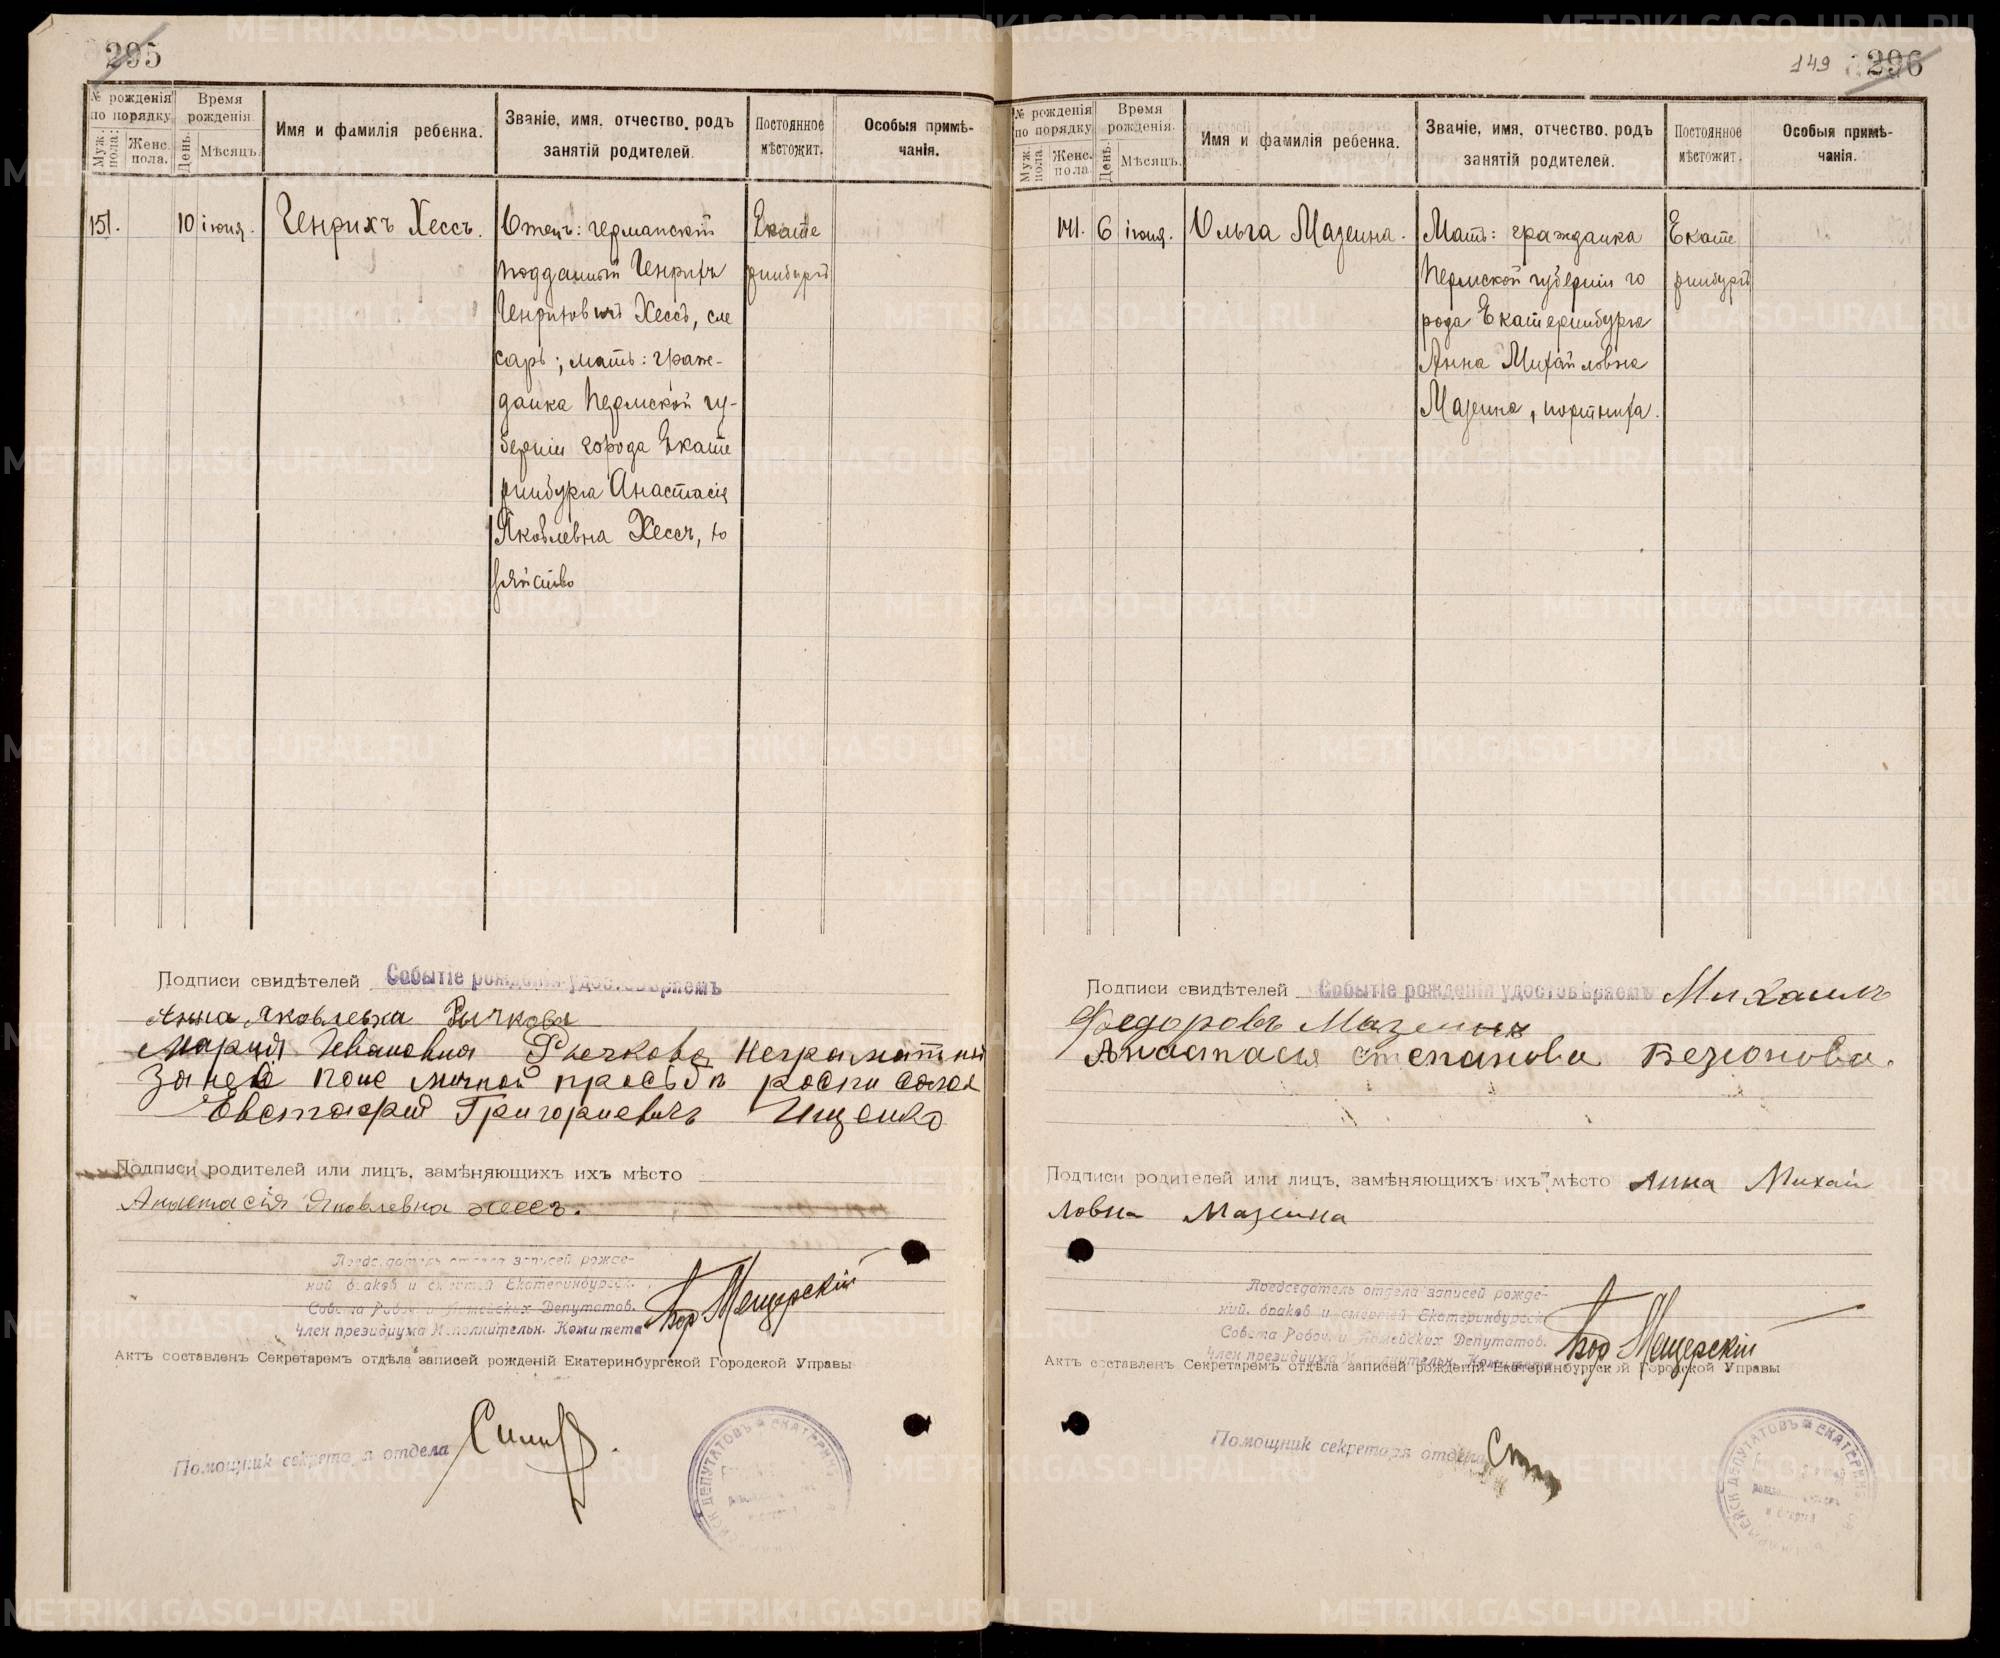 295
№ рожденія по порядку.
Муж. пола.
Женс. пола.
Время рожденія.
День.
Мѣсяцъ.
Имя и фамилія ребенка.
Званіе, имя, отчество, родъ занятій родителей.
Постоянное мѣстожит.
Особыя примѣчанія.
151.
10
іюня.
Генрихъ Хессъ.
Отецъ: германскій
подданный Генрихъ
Генриховичъ Хессъ, сле
сарь; мать: граж-
данка Пермской гу-
берніи города Екате
ринбурга Анастасія
Яковлевна Хессъ, хо
зяйство
Екате
ринбургъ
Подписи свидѣтелей Событіе рожденія удостовѣряемъ
Анна Яковлевна Рычкова
Мария Ивановна Рычкова неграмотный
За нея по ие личной просьбѣ росписался
Евстафий Григориевичъ Ищенко
Подписи родителей или лицъ, замѣняющихъ ихъ мѣсто
Анастасія Яковлевна Хессъ.
Председатель отдела записей рожде-
ний браков и смертей Екатеринбургск.
Совета Рабоч. и Армейских Депутатов.
Член президиума Исполнительн. Комитета
Мещерскій
Актъ составленъ Секретаремъ отдѣла записей рожденій Екатеринбургской Городской Управы
Помощник секретаря отдела
ДЕПУТАТОВЪ ЕКАТЕРИН
149
296
№ рожденія по порядку.
Муж. пола
Женс. пола.
Время рожденія.
День.
Мѣсяцъ.
Имя и фамилія ребенка.
Званіе, имя, отчество, родъ занятій родителей.
Постоянное мѣстожит.
Особыя примѣчанія.
141.
6
іюня.
Ольга Мазеина.
Мать: гражданка
Пермской губерніи го
рода Екатеринбурга
Анна Михайловна
Мазеина, портниха.
Екате
ринбургъ
Подписи свидѣтелей Событіе рожденія удостовѣряемъ Михаилъ
Федоровъ Мазеинъ
Анастасия степанова Безионова.
Подписи родителей или лицъ, замѣняющихъ ихъ мѣсто Анна Михай
ловна Мазеина
Председатель отдела записей рожде-
ний, браков и смертей Екатеринбургск.
Совета Рабоч. и Армейских Депутатов.
Член президиума Исполнительн. Комитета
Мещерскій
Актъ составленъ Секретаремъ отдѣла записей рожденій Екатеринбургской Городской Управы
Помощник секретаря отдела
АРМЕЙСК ДЕПУТАТОВЪ ЕКАТЕРИН
METRIKI.GASO-URAL.RU